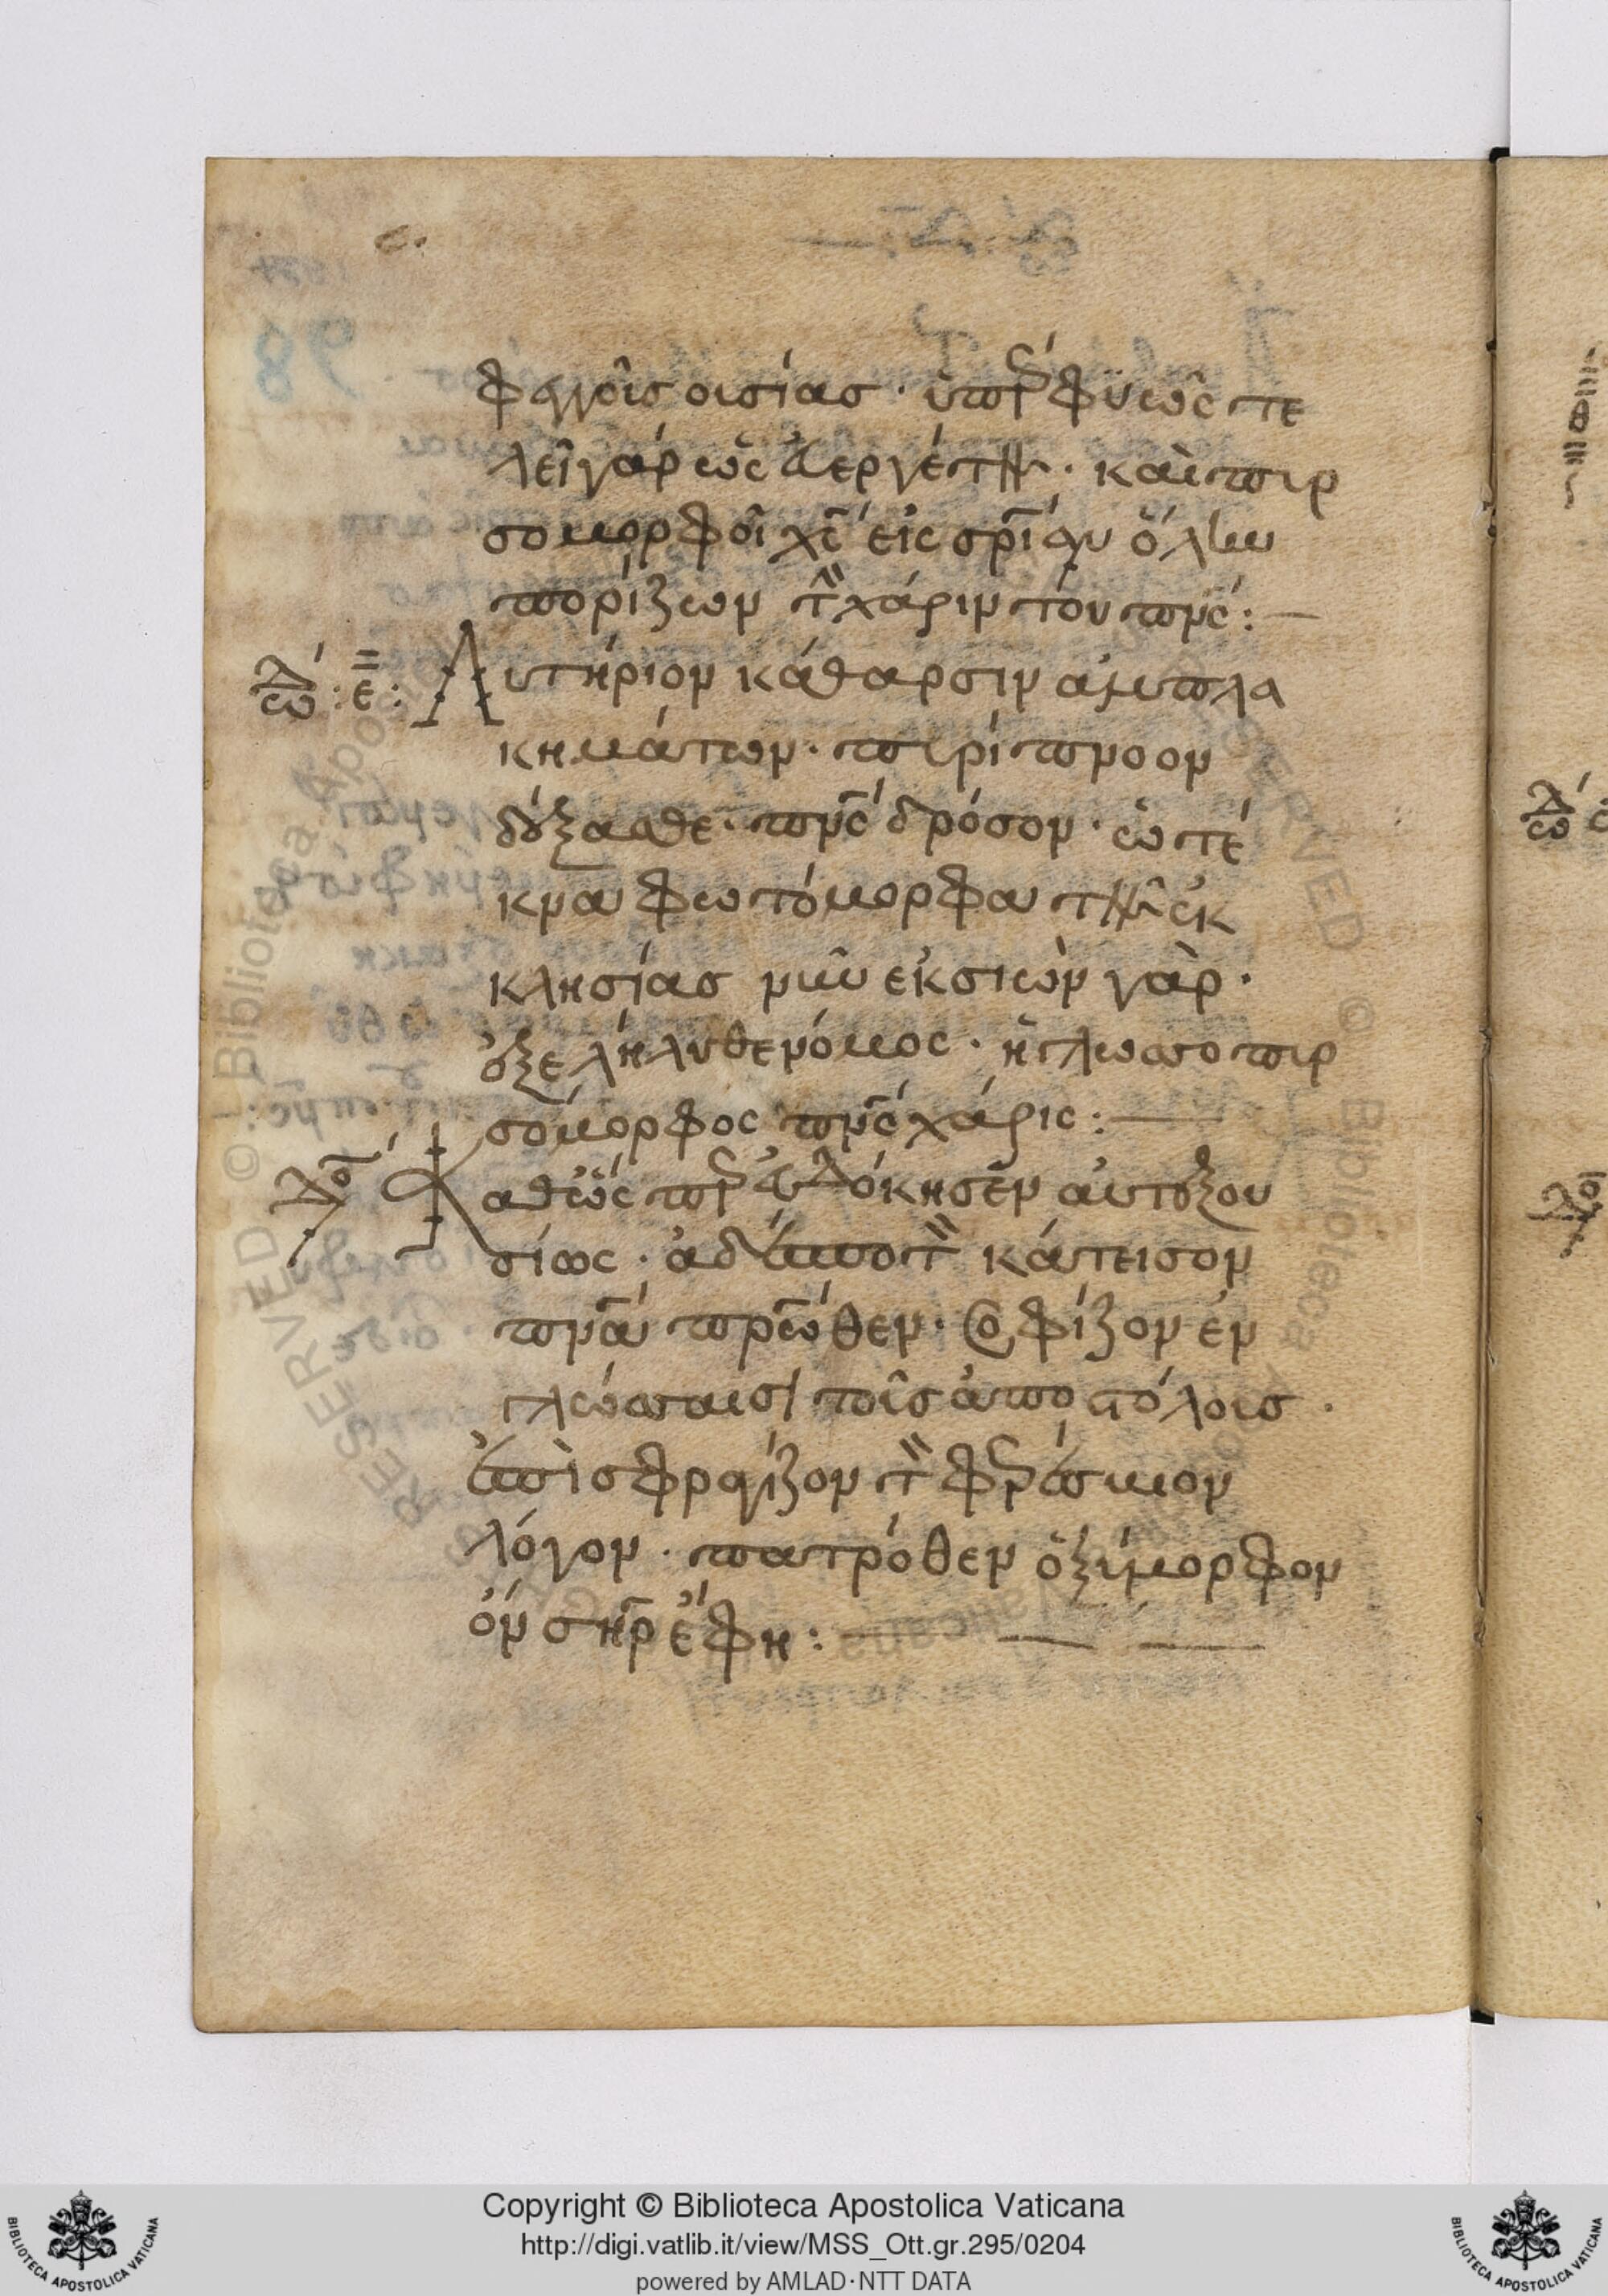 φεγγοῖς οὐσίας · ὑπερφυῶς τε
λεῖ γὰρ ὡς εὐεργέτης · καὶ πυρ
σομορφοῖ χς εἰς σρίαν ὅλην
πορίζων τὴν χάριν τοῦ πνς : —
ᾠδ : ε : Λυτήριον κάθαρσιν ἀμπλα
κημάτων · πυρίπνοον
δέξασθε · πνς δρόσον · ὦ τέ
κνα φωτόμορφα τῆς ἐκ
κλησίας νῦν ἐκ σιὼν γὰρ ·
ἐξελήλυθε νόμος · ἡ γλωσσοπυρ
σόμορφος πνς χάρις : —
Καθὼς περ εὐδόκησεν αὐτεξου
σίως · ἀδέσποτον κάτεισον
πνα πρωθεν · σοφίζον ἐν
γλώσσαισι τοῖς ἀποστόλοις ·
ἐπισφραγίζον τὴν φερέσβιον
λόγον · πατρόθεν ὀξύμορφον
ὃν σηρ ἔφη : —
Copyright © Biblioteca Apostolica Vaticana
http://digi.vatlib.it/view/MSS_Ott.gr.295/0204
powered by AMLAD·NTT DATA